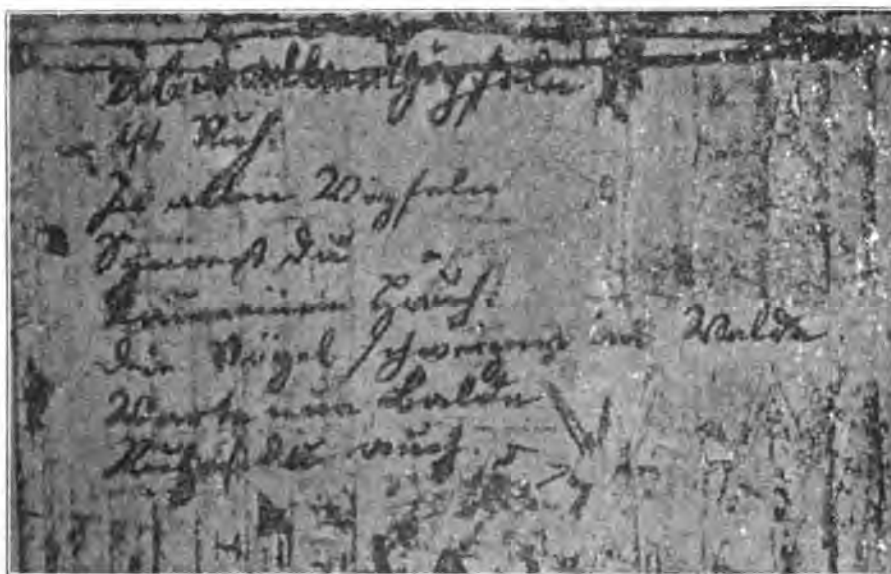 Über allen Gipfeln
Ist Ruh.
In allen Wipfeln
Spürest du
Kaum einen Hauch.
Die Vögel schweigen im Walde
Warte nur Balde
Ruhest du auch.